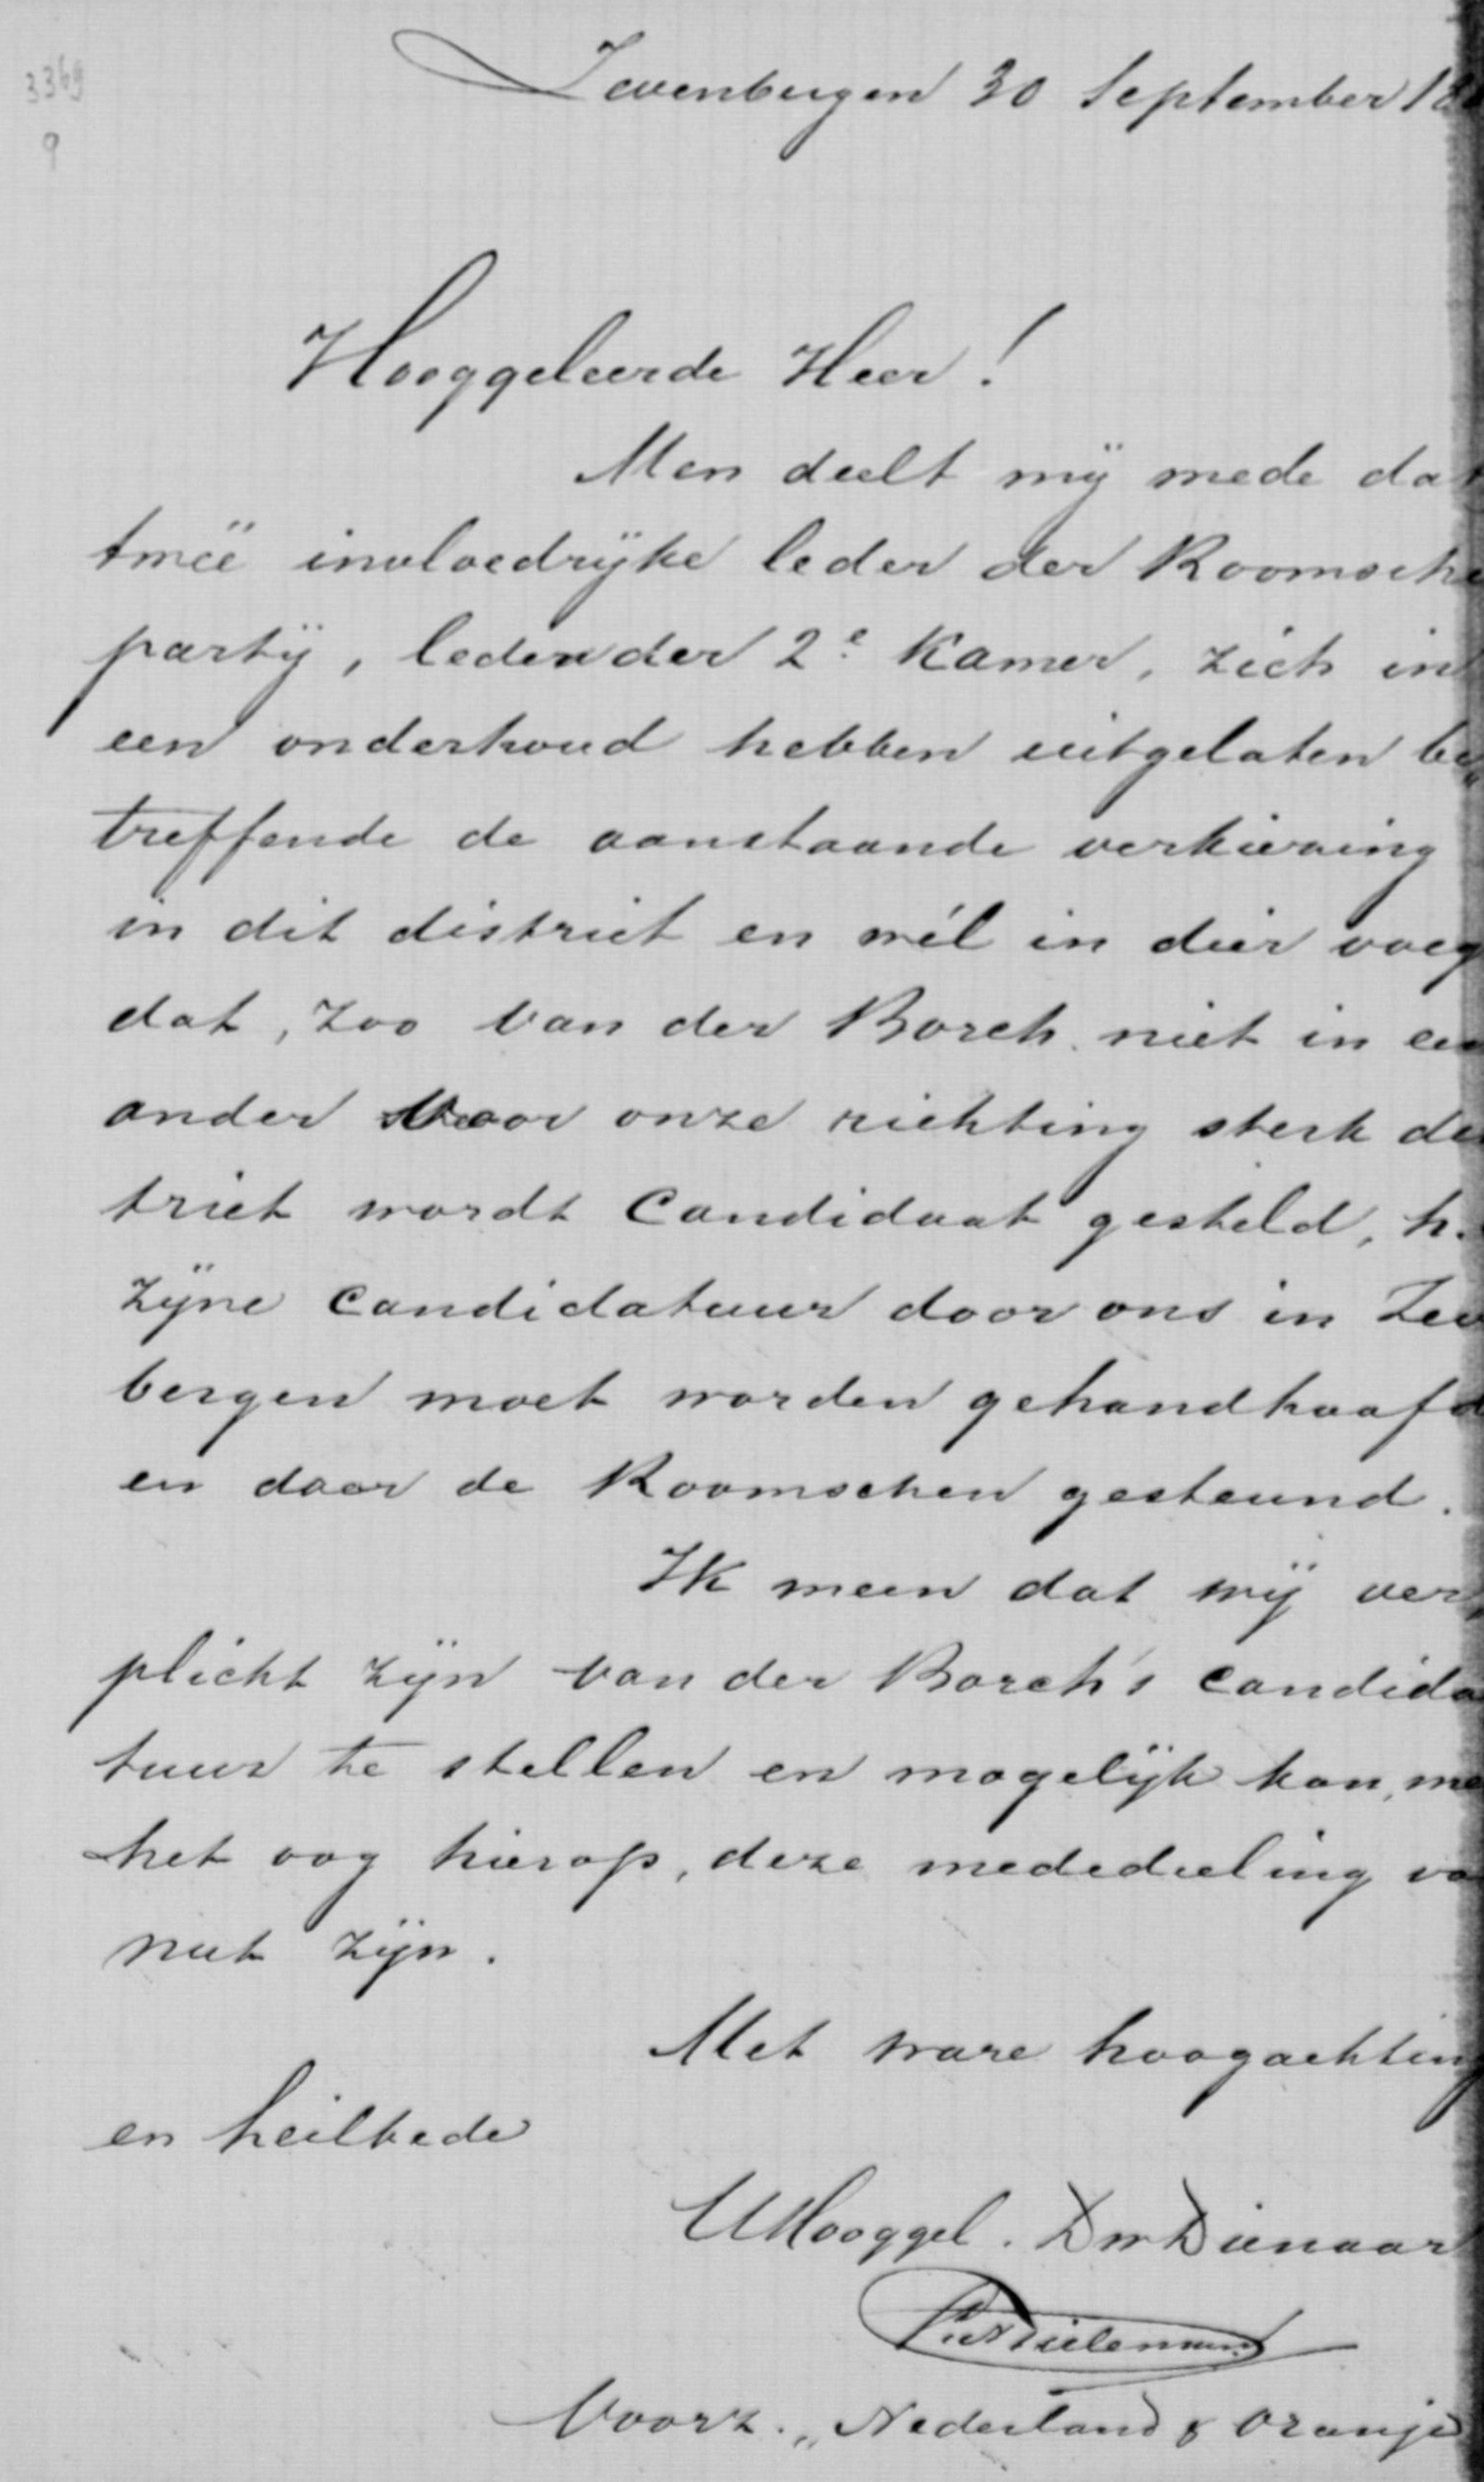 3369
9
Zevenbergen 30 September 18
Hooggeleerde Heer!
Men deelt mij mede dat
tweë invloedrijke leden der Roomsche
partij, leden der 2e Kamer, zich in
een onderhoud hebben uitgelaten be„
treffende de aanstaande verkiezing
in dit district en wél in dier voeg
dat, zoo van der Borch niet in een
ander voor onze richting sterk dis
trict wordt Candidaat gesteld, h.
zijne Candidatuur door ons in Zev
bergen moet worden gehandhaafd
en door de Roomschen gesteund.
Ik meen dat wij ver„
plicht zijn van der Borch's Candida
tuur te stellen en mogelijk kan, me
het oog hierop, deze mededeeling va
nut zijn.
Met ware hoogachting
en heilbede
UHooggel. Dw Dienaar
Voorz. „Nederland & Oranje